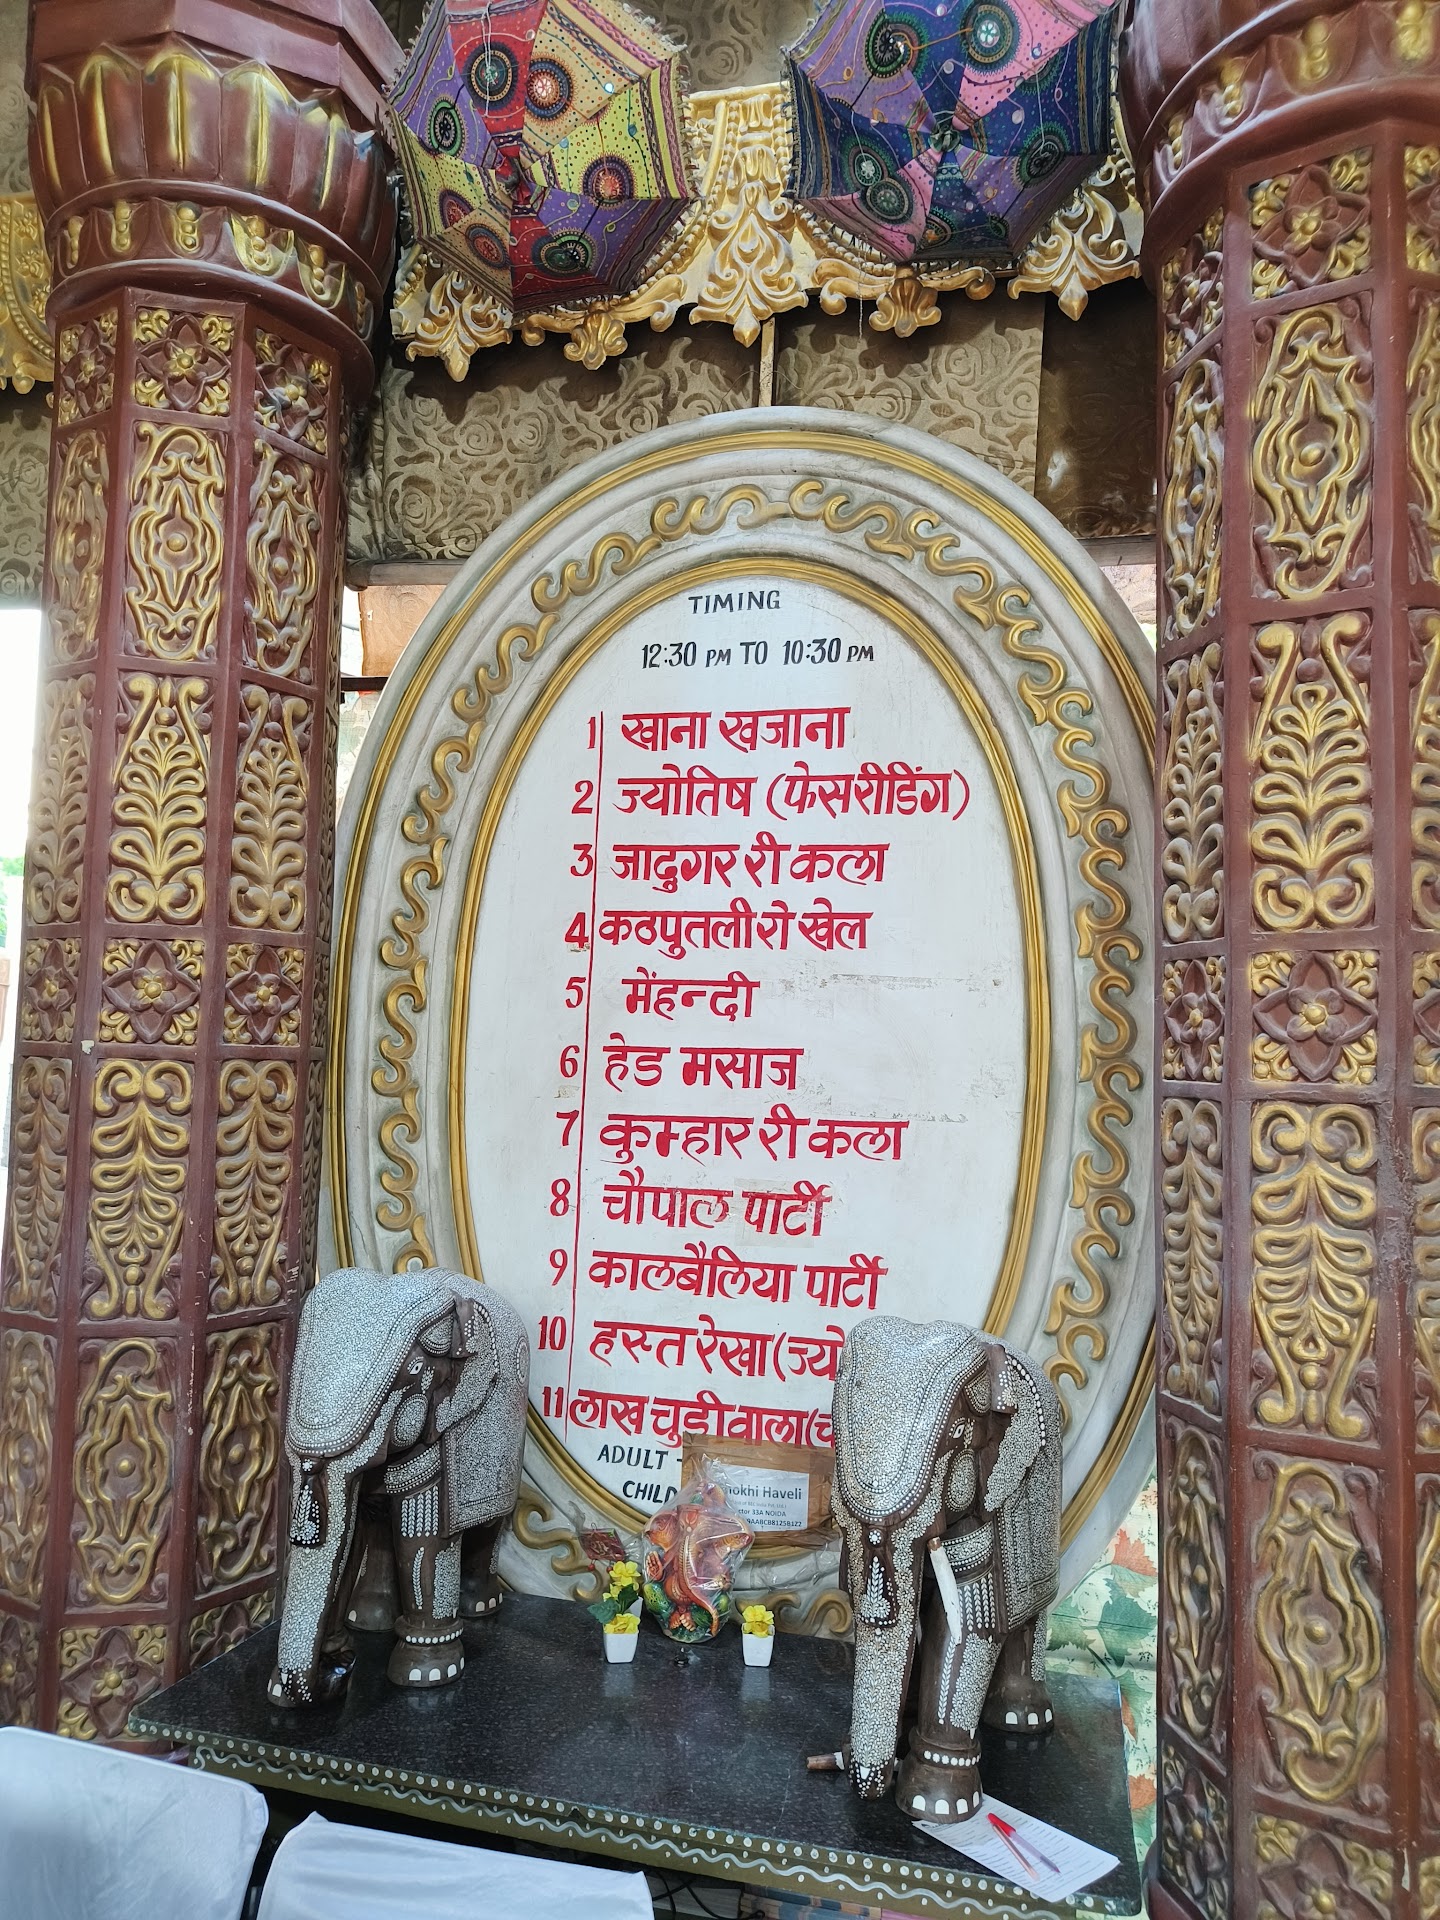 TIMING
12:30 PM TO 10:30 PM
1 खाना खजाना
2 ज्योतिष (फेसरीडिंग)
3 जादुगर री कला
4 कठपुतली रो खेल
5 मेंहन्दी
6 हेड मसाज
7 कुम्हार री कला
8 चौपाल पार्टी
9 कालबैलिया पार्टी
10 हस्त रेखा (ज्यो
11 लाख चुडीवाला (च
ADULT -
CHILD
okhi Haveli
Sector 33A NOIDA